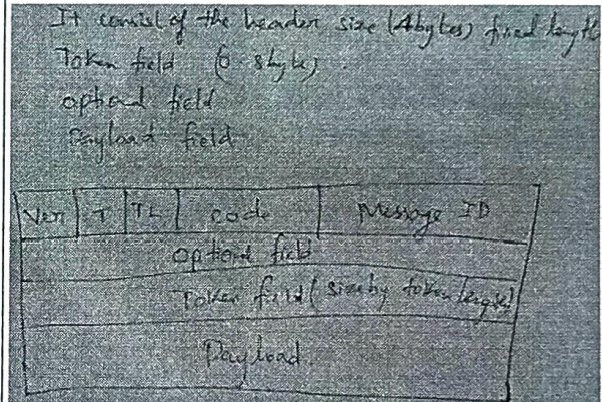 It consist of the header size (4bytes) fixed length
Token field (0-8byte).
optional field
Payload field
Ver T TL code Message ID
optional field
Token field (size by token length)
Payload.